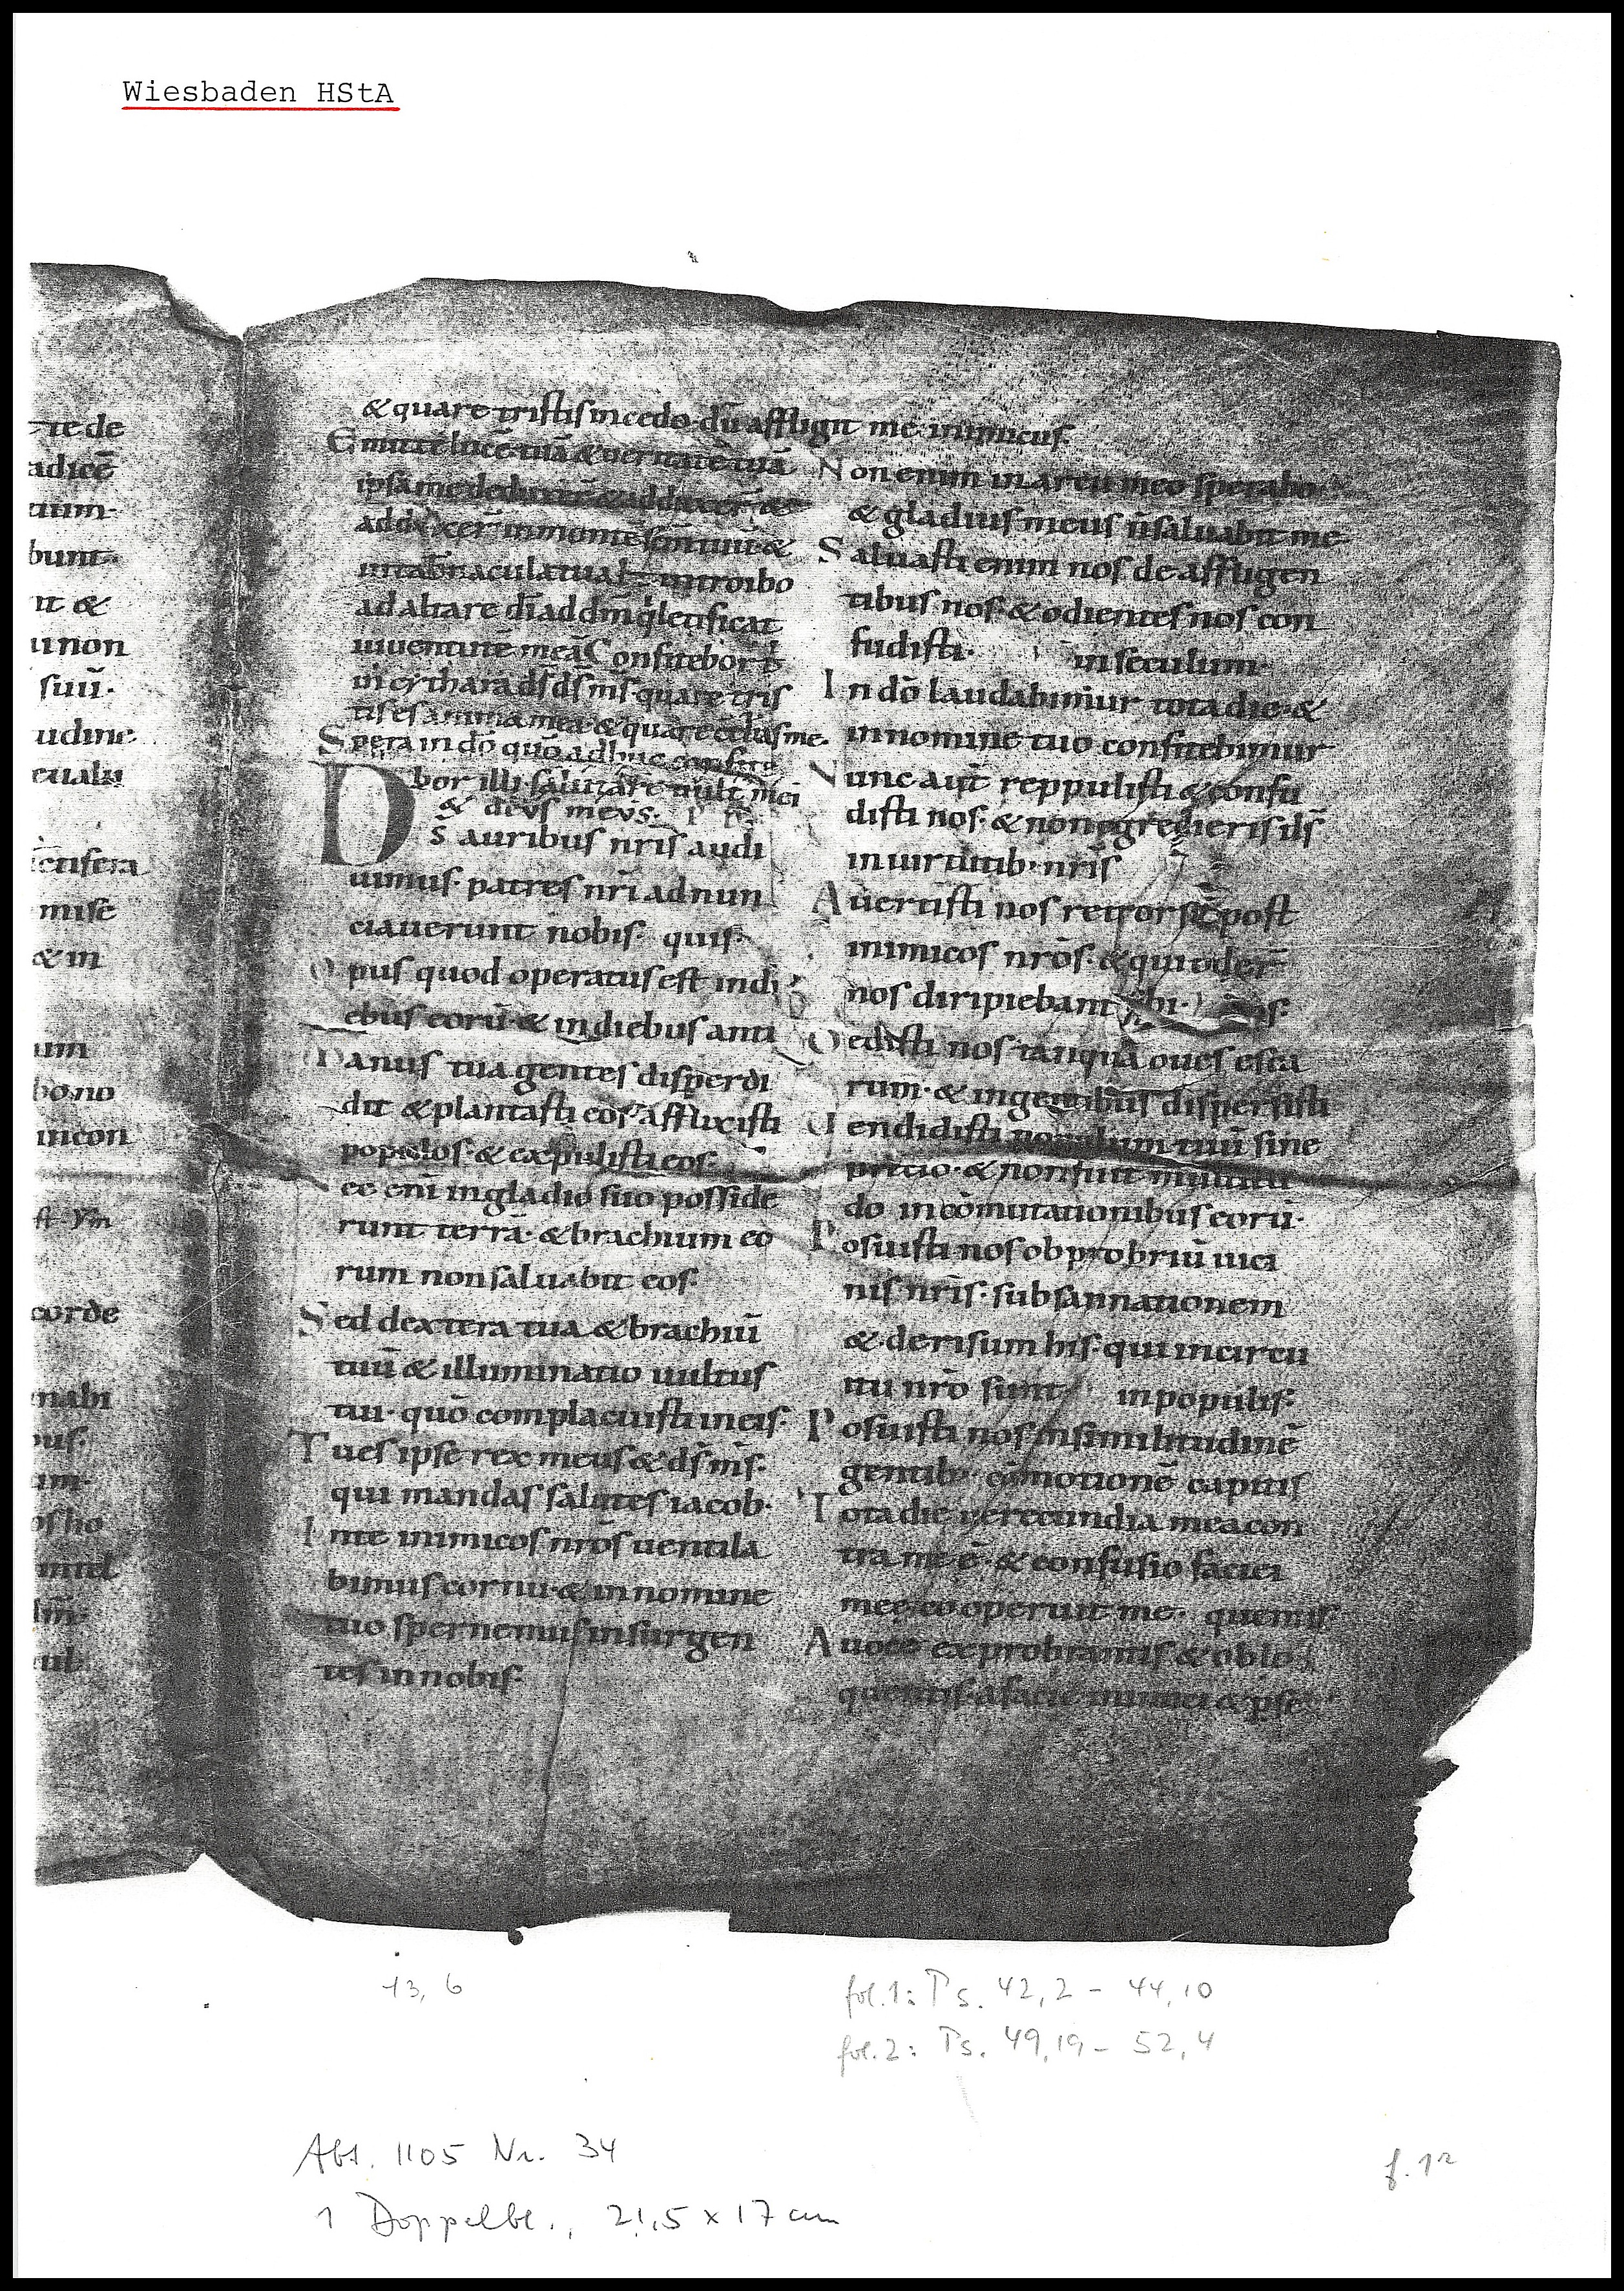 Wiesbaden HStA
te de
adicē
tium·
bunt·
it &
u non
suū·
udine
eualu
mise
& in
um
bono
incon
corde
nabi
pus·
am·
& quare tristis incedo· dū affligit me inimicus·
Emitte lucē tuā & ueritatē tuā
ipsa me deduxer̄ & adduxer̄ &
adduxer̄ in monte sc̄m tuū &
in tab̄nacula tua introibo
ad altare dī ad dm̄ qͥ letificat
iuuentutē meā Confitebor tͥ
in cythara dš dš mš quare tris
tis es anima mea & quare ↄturbas me·
Spera in dō quō adhuc confite
bor illi salutare uult mei
& deus meus·
Dš auribus nrīs audi
uimus· patres nrī adnun
ciauerunt nobis· quis·
Opus quod operatus est indi
ebus eorū· & in diebus anti
Manus tua gentes disperdi
dit & plantasti eos· afflixisti
populos· & expulisti eos·
ec enī in gladio suo posside
runt terrā· & brachium eo
rum non saluabit eos·
Sed dextera tua & brachiū
tuū & illuminatio uultus
tui· quō complacuisti in eis·
Tu es ipse rex meus & dš mš·
qui mandas salutes iacob·
In te inimicos nrōs uentila
bimus cornu· & in nomine
tuo spernemus insurgen
tes in nobis·
Non enim in arcu meo sperabo
& gladius meus n̄ saluabit me
Saluasti enim nos de affligen
tibus nos· & odientes nos con
fudisti· in seculum·
In dō laudabimur tota die· &
in nomine tuo confitebimur
Nunc aūt reppulisti & confu
disti nos· & non egredieris dš
in uirtutib· nrīs
Auertisti nos retrorsū post
inimicos nrōs· & qui oder̄
nos diripiebant sibi·
Dedisti nos tanquā oues esca
rum· & in gentibus dispersisti
Uendidisti populum tuū sine
precio· & non fuit multitu
do in cōmutationibus eorū·
Posuisti nos obprobriū uici
nis nrīs· subsannationem
& derisum his· qui in circu
itu nrō sunt in populis·
Posuisti nos in similitudinē
gentib· cōmotionē capitis
Tota die uerecundia mea con
tra me ē· & confusio faciei
mee cooperuit me· quentis·
A uoce exprobrantis & oblo
quentis· a facie inimici & p̱se
13, 6
fol.1: Ps. 42,2 - 44,10
fol.2: Ps. 49,19 - 52,4
Abt. 1105 Nr. 34
f. 1r
1 Doppelbl., 21,5 x 17 cm